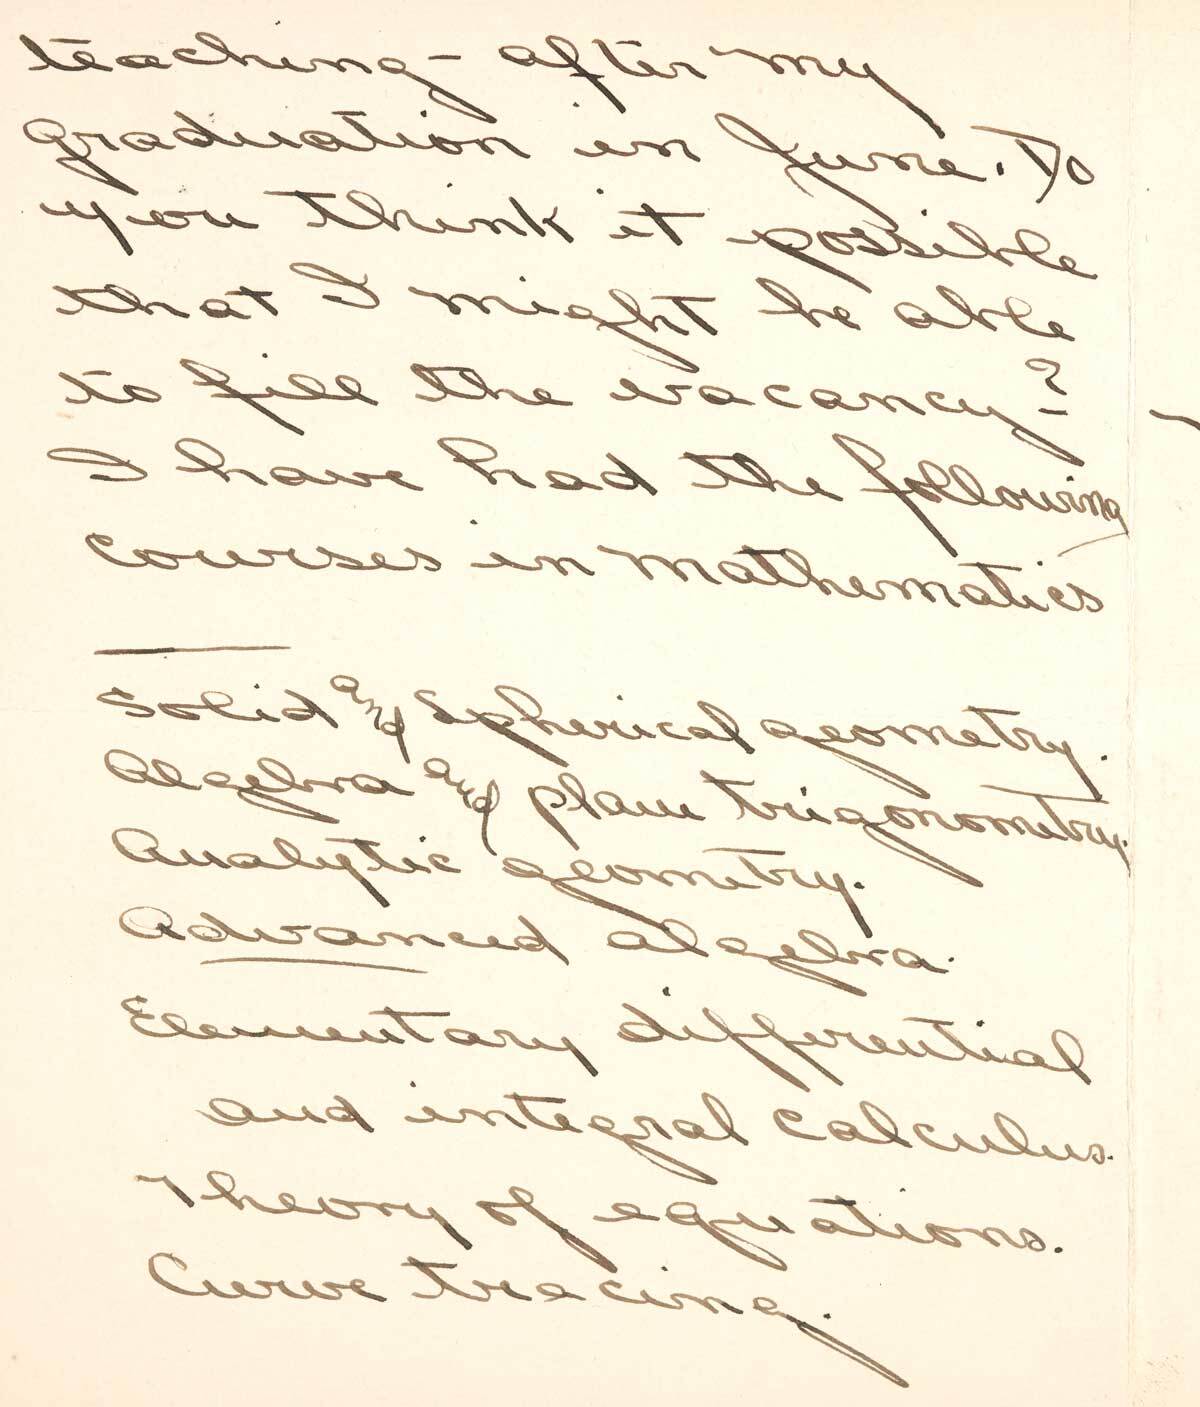 teaching - after my
graduation in June. Do
you think it possible
that I might be able
to fill the vacancy?
I have had the following
courses in mathematics
Solid and Spherical geometry.
Algebra and plane trigonometry.
Analytic geometry.
Advanced algebra.
Elementary differential
and integral calculus.
Theory of equations.
Curve tracing.